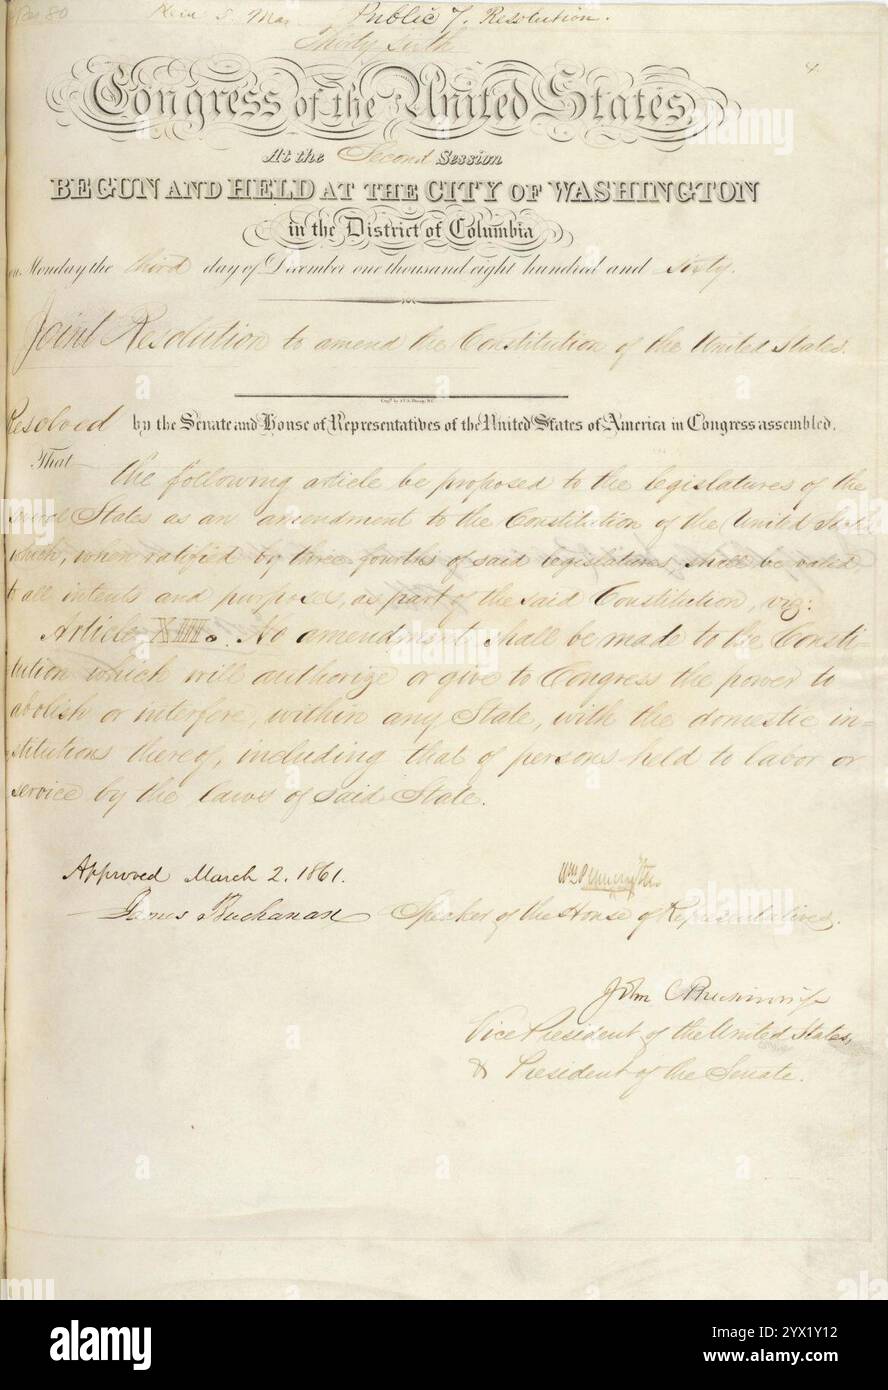 Public 7. Resolution.
Thirty Sixth
4.
Congress of the United States,
At the Second Session
BEGUN AND HELD AT THE CITY OF WASHINGTON
in the District of Columbia
on Monday the third day of December one thousand eight hundred and sixty.
Joint Resolution to amend the Constitution of the United States.
Resolved by the Senate and House of Representatives of the United States of America in Congress assembled,
That
the following article be proposed to the legislatures of the
several States as an amendment to the Constitution of the United States,
which, when ratified by three fourths of said legislatures, shall be valid,
to all intents and purposes, as part of the said Constitution, viz:
Article XIII. No amendment shall be made to the Consti-
tution which will authorize or give to Congress the power to
abolish or interfere, within any State, with the domestic in=
stitutions thereof, including that of persons held to labor or
service by the laws of said State.
Approved March 2. 1861.
James Buchanan
Wm Pennington
Speaker of the House of Representatives.
John C Breckinridge
Vice President of the United States,
& President of the Senate.
alamy
Image ID: 2YX1Y12
www.alamy.com